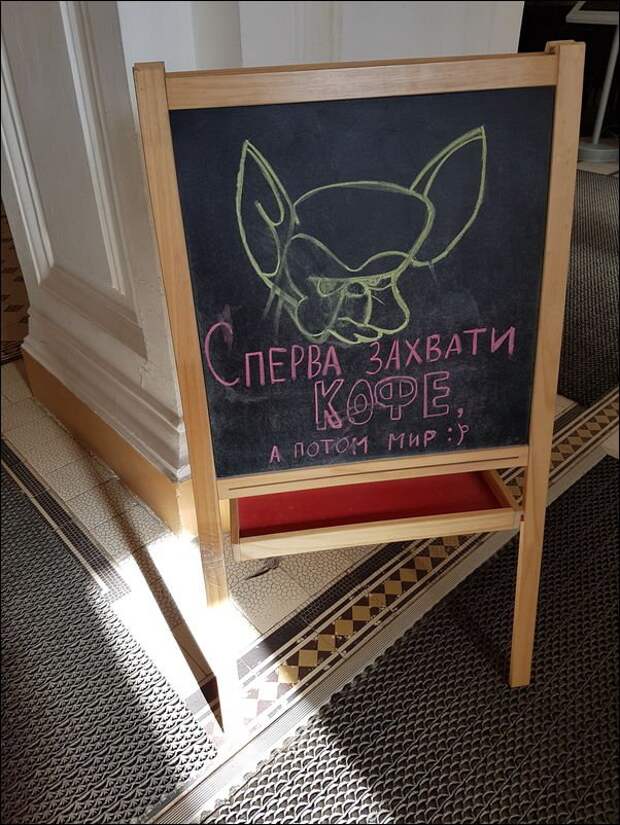 Сперва захвати
КОФЕ,
а потом мир :}